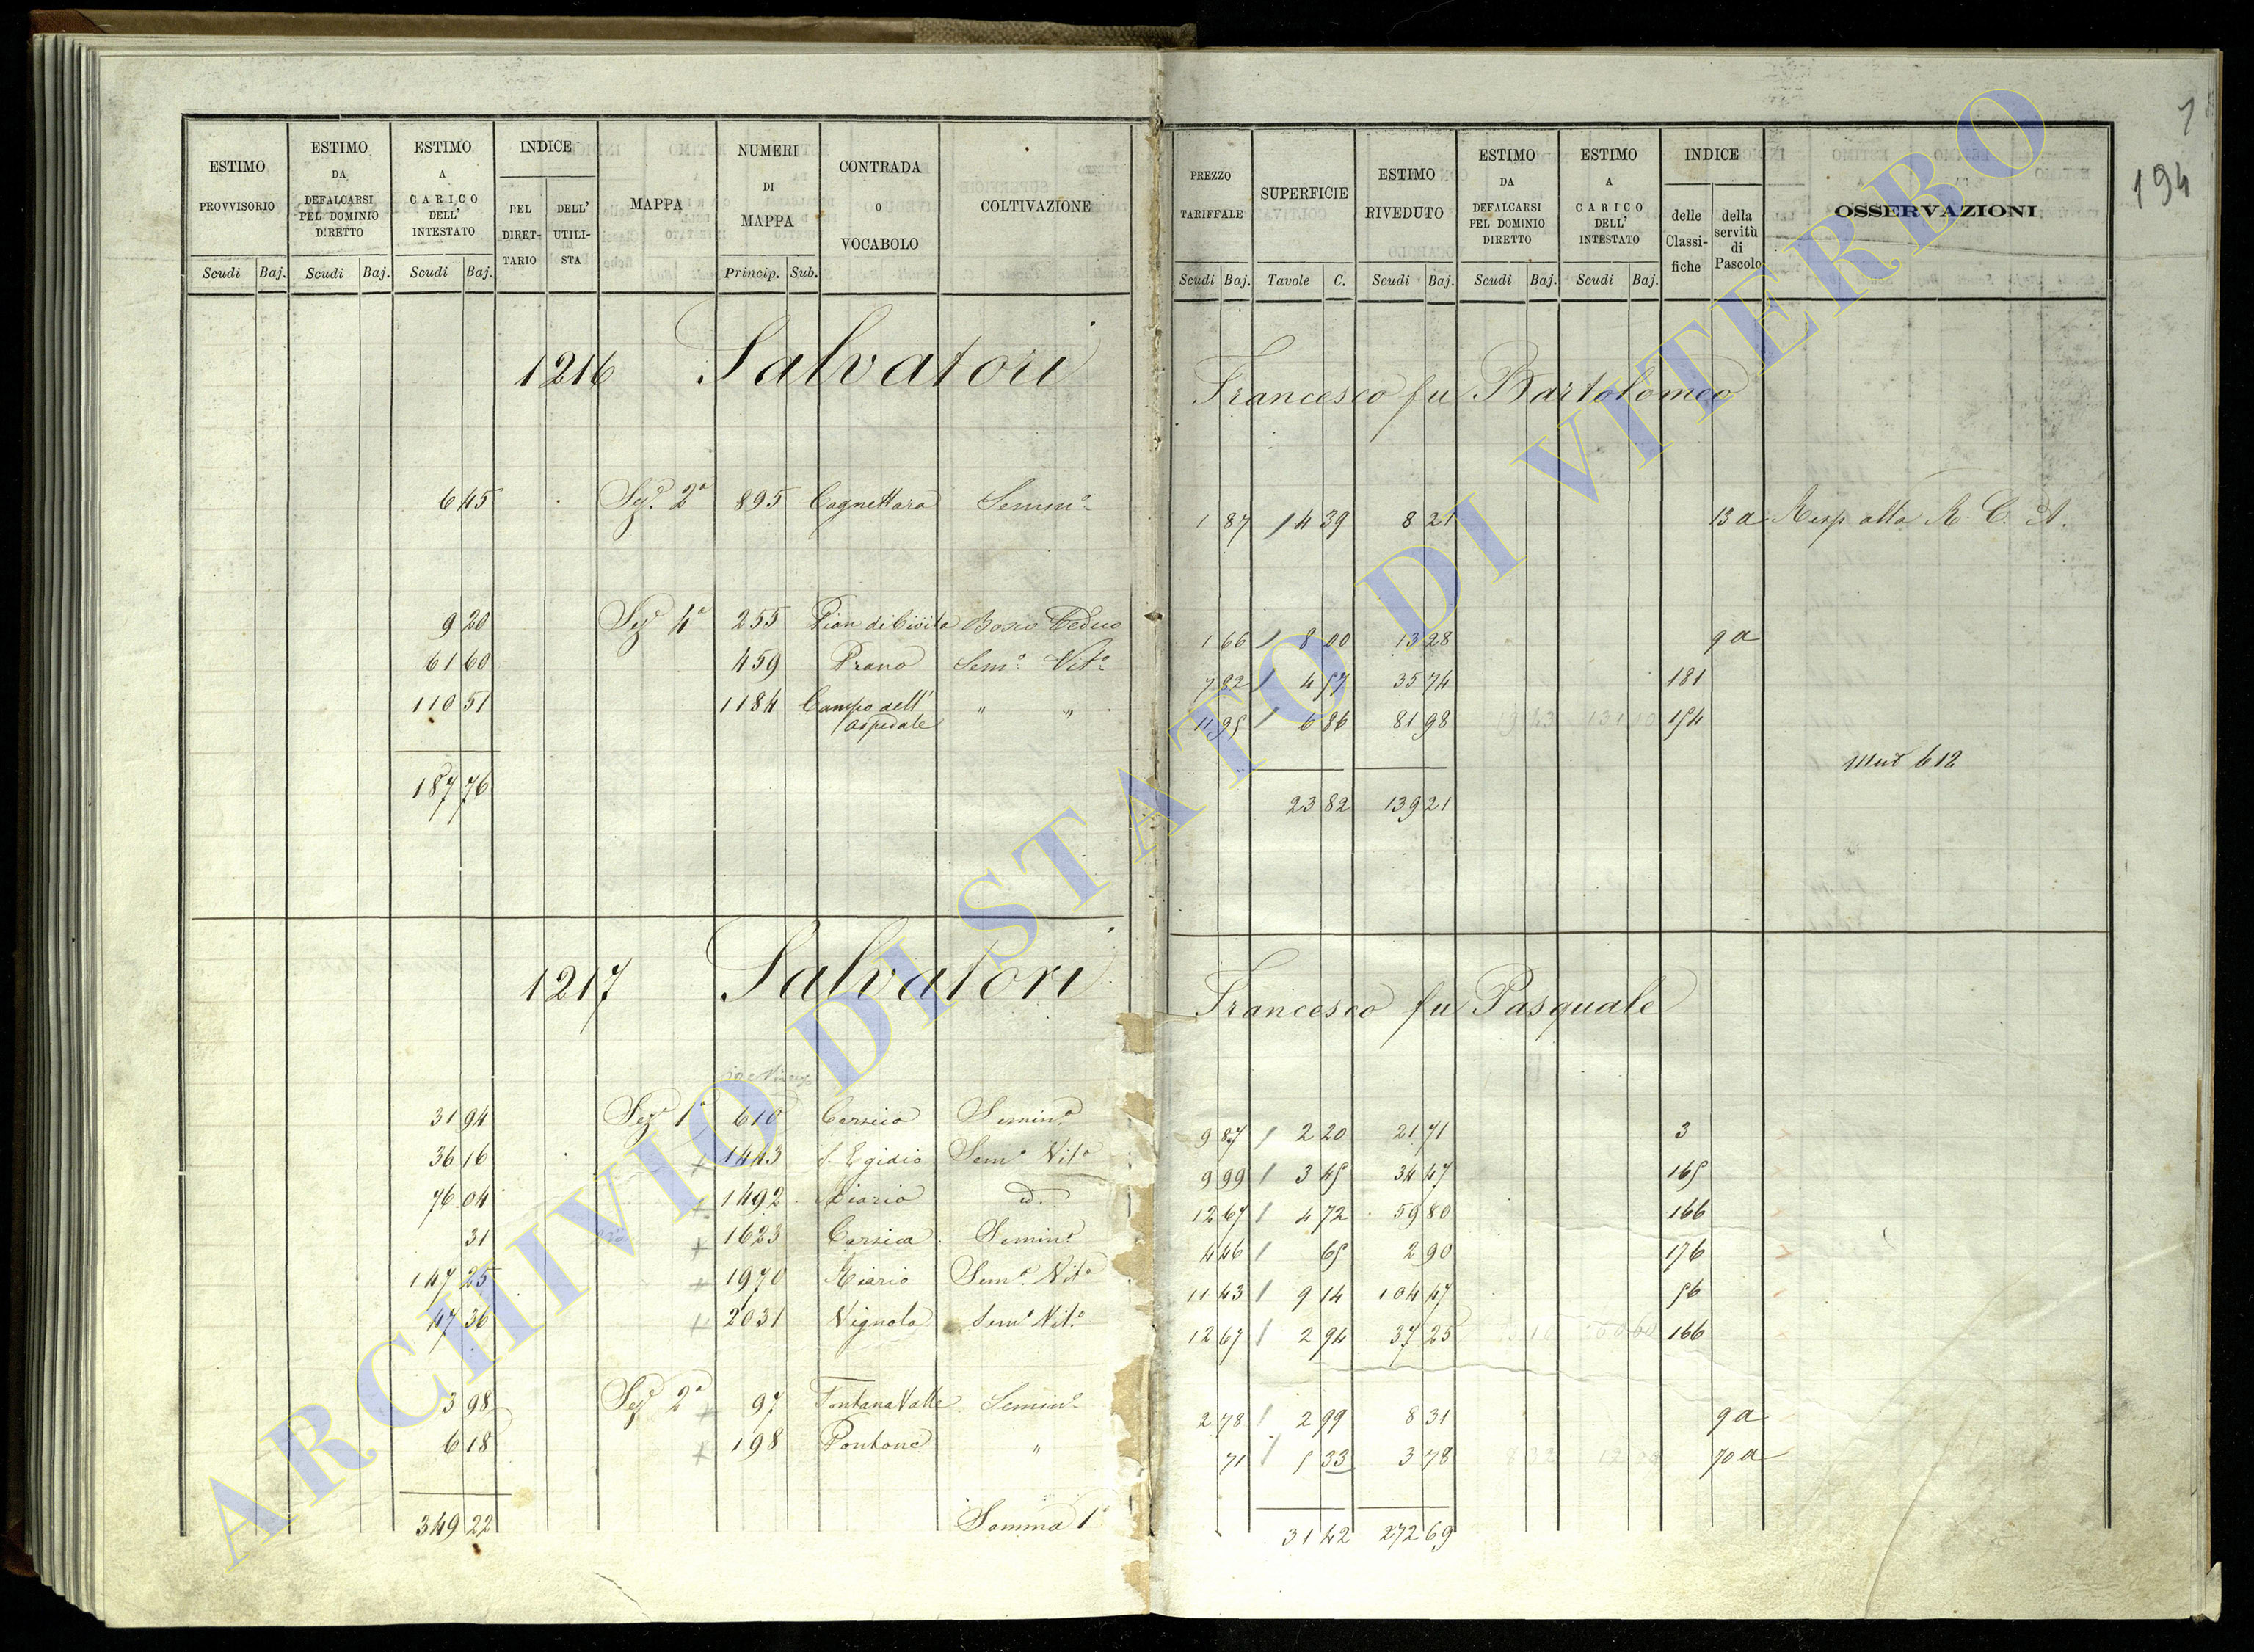 194
ESTIMO PROVVISORIO
Scudi Baj.
ESTIMO DA DEFALCARSI PEL DOMINIO DIRETTO
Scudi Baj.
ESTIMO A CARICO DELL' INTESTATO
Scudi Baj.
INDICE
DEL DIRET- TARIO
DELL' UTILI- STA
MAPPA
NUMERI DI MAPPA
Princip. Sub.
CONTRADA O VOCABOLO
COLTIVAZIONE
PREZZO TARIFFALE
Scudi Baj.
SUPERFICIE
Tavole C.
ESTIMO RIVEDUTO
Scudi Baj.
ESTIMO DA DEFALCARSI PEL DOMINIO DIRETTO
Scudi Baj.
ESTIMO A CARICO DELL' INTESTATO
Scudi Baj.
INDICE
delle Classi- fiche
della servitù di Pascolo
OSSERVAZIONI
1216 Salvatori Francesco fu Bartolomeo
6 45 Sez. 2a 895 Cagnettara Semin.o 1 87 14 39 8 21 13 a Resp alla R. C. A.
9 20 Sez 4a 255 Pian di Civita Bosco Ceduo 1 66 8 00 13 28 9 a
61 60 459 Prano Sem.o Vit.o 7 82 4 57 35 74 181
110 51 1184 Campo dell' Ospedale " " 11 95 6 86 81 98 154
Mut 612
187 76 23 82 139 21
1217 Salvatori Francesco fu Pasquale
31 94 Sez 1a 610 Corsica Semin.o 9 87 2 20 21 71 3
36 16 + 1443 S. Egidio Sem.o Vit.o 9 99 3 45 34 47 165
76 04 + 1492 Riario d. 12 67 4 72 59 80 166
31 + 1623 Corsica Semin.o 4 46 65 2 90 176
147 25 + 1970 Riario Sem.o Vit.o 11 43 9 14 104 47 56
47 36 + 2031 Vignola Sem.o Vit.o 12 67 2 94 37 25 166
3 98 Sez 2a + 97 Fontana Valle Semin.o 2 78 2 99 8 31 9 a
6 18 + 198 Pontone " 71 5 33 3 78 70 a
349 22 Somma 1a 31 42 272 69
ARCHIVIO DI STATO DI VITERBO